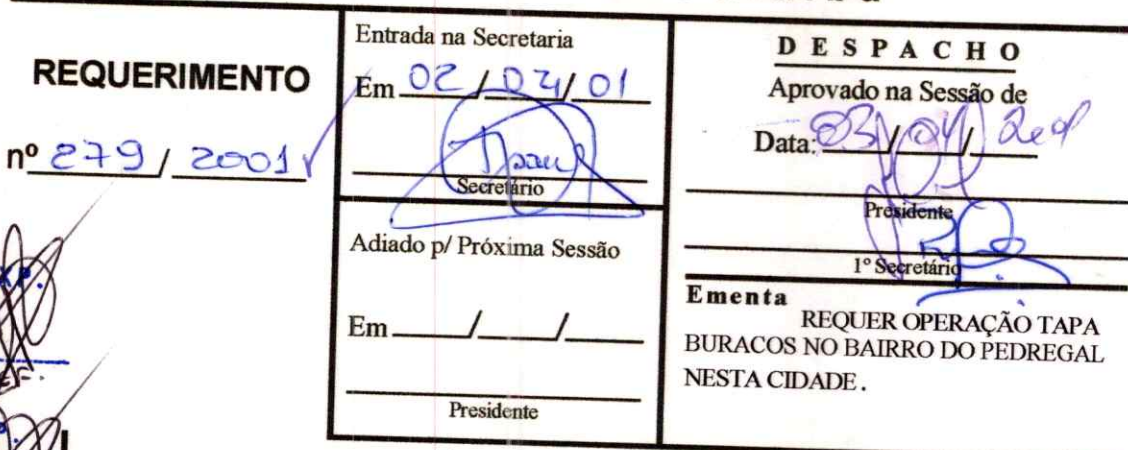 REQUERIMENTO
nº 279 / 2001
Entrada na Secretaria
Em 02 / 04 / 01
Secretário
Adiado p/ Próxima Sessão
Em ___/___/___
Presidente
DESPACHO
Aprovado na Sessão de
Data: 03 / 04 / 2001
Presidente
1º Secretário
Ementa
REQUER OPERAÇÃO TAPA
BURACOS NO BAIRRO DO PEDREGAL
NESTA CIDADE.